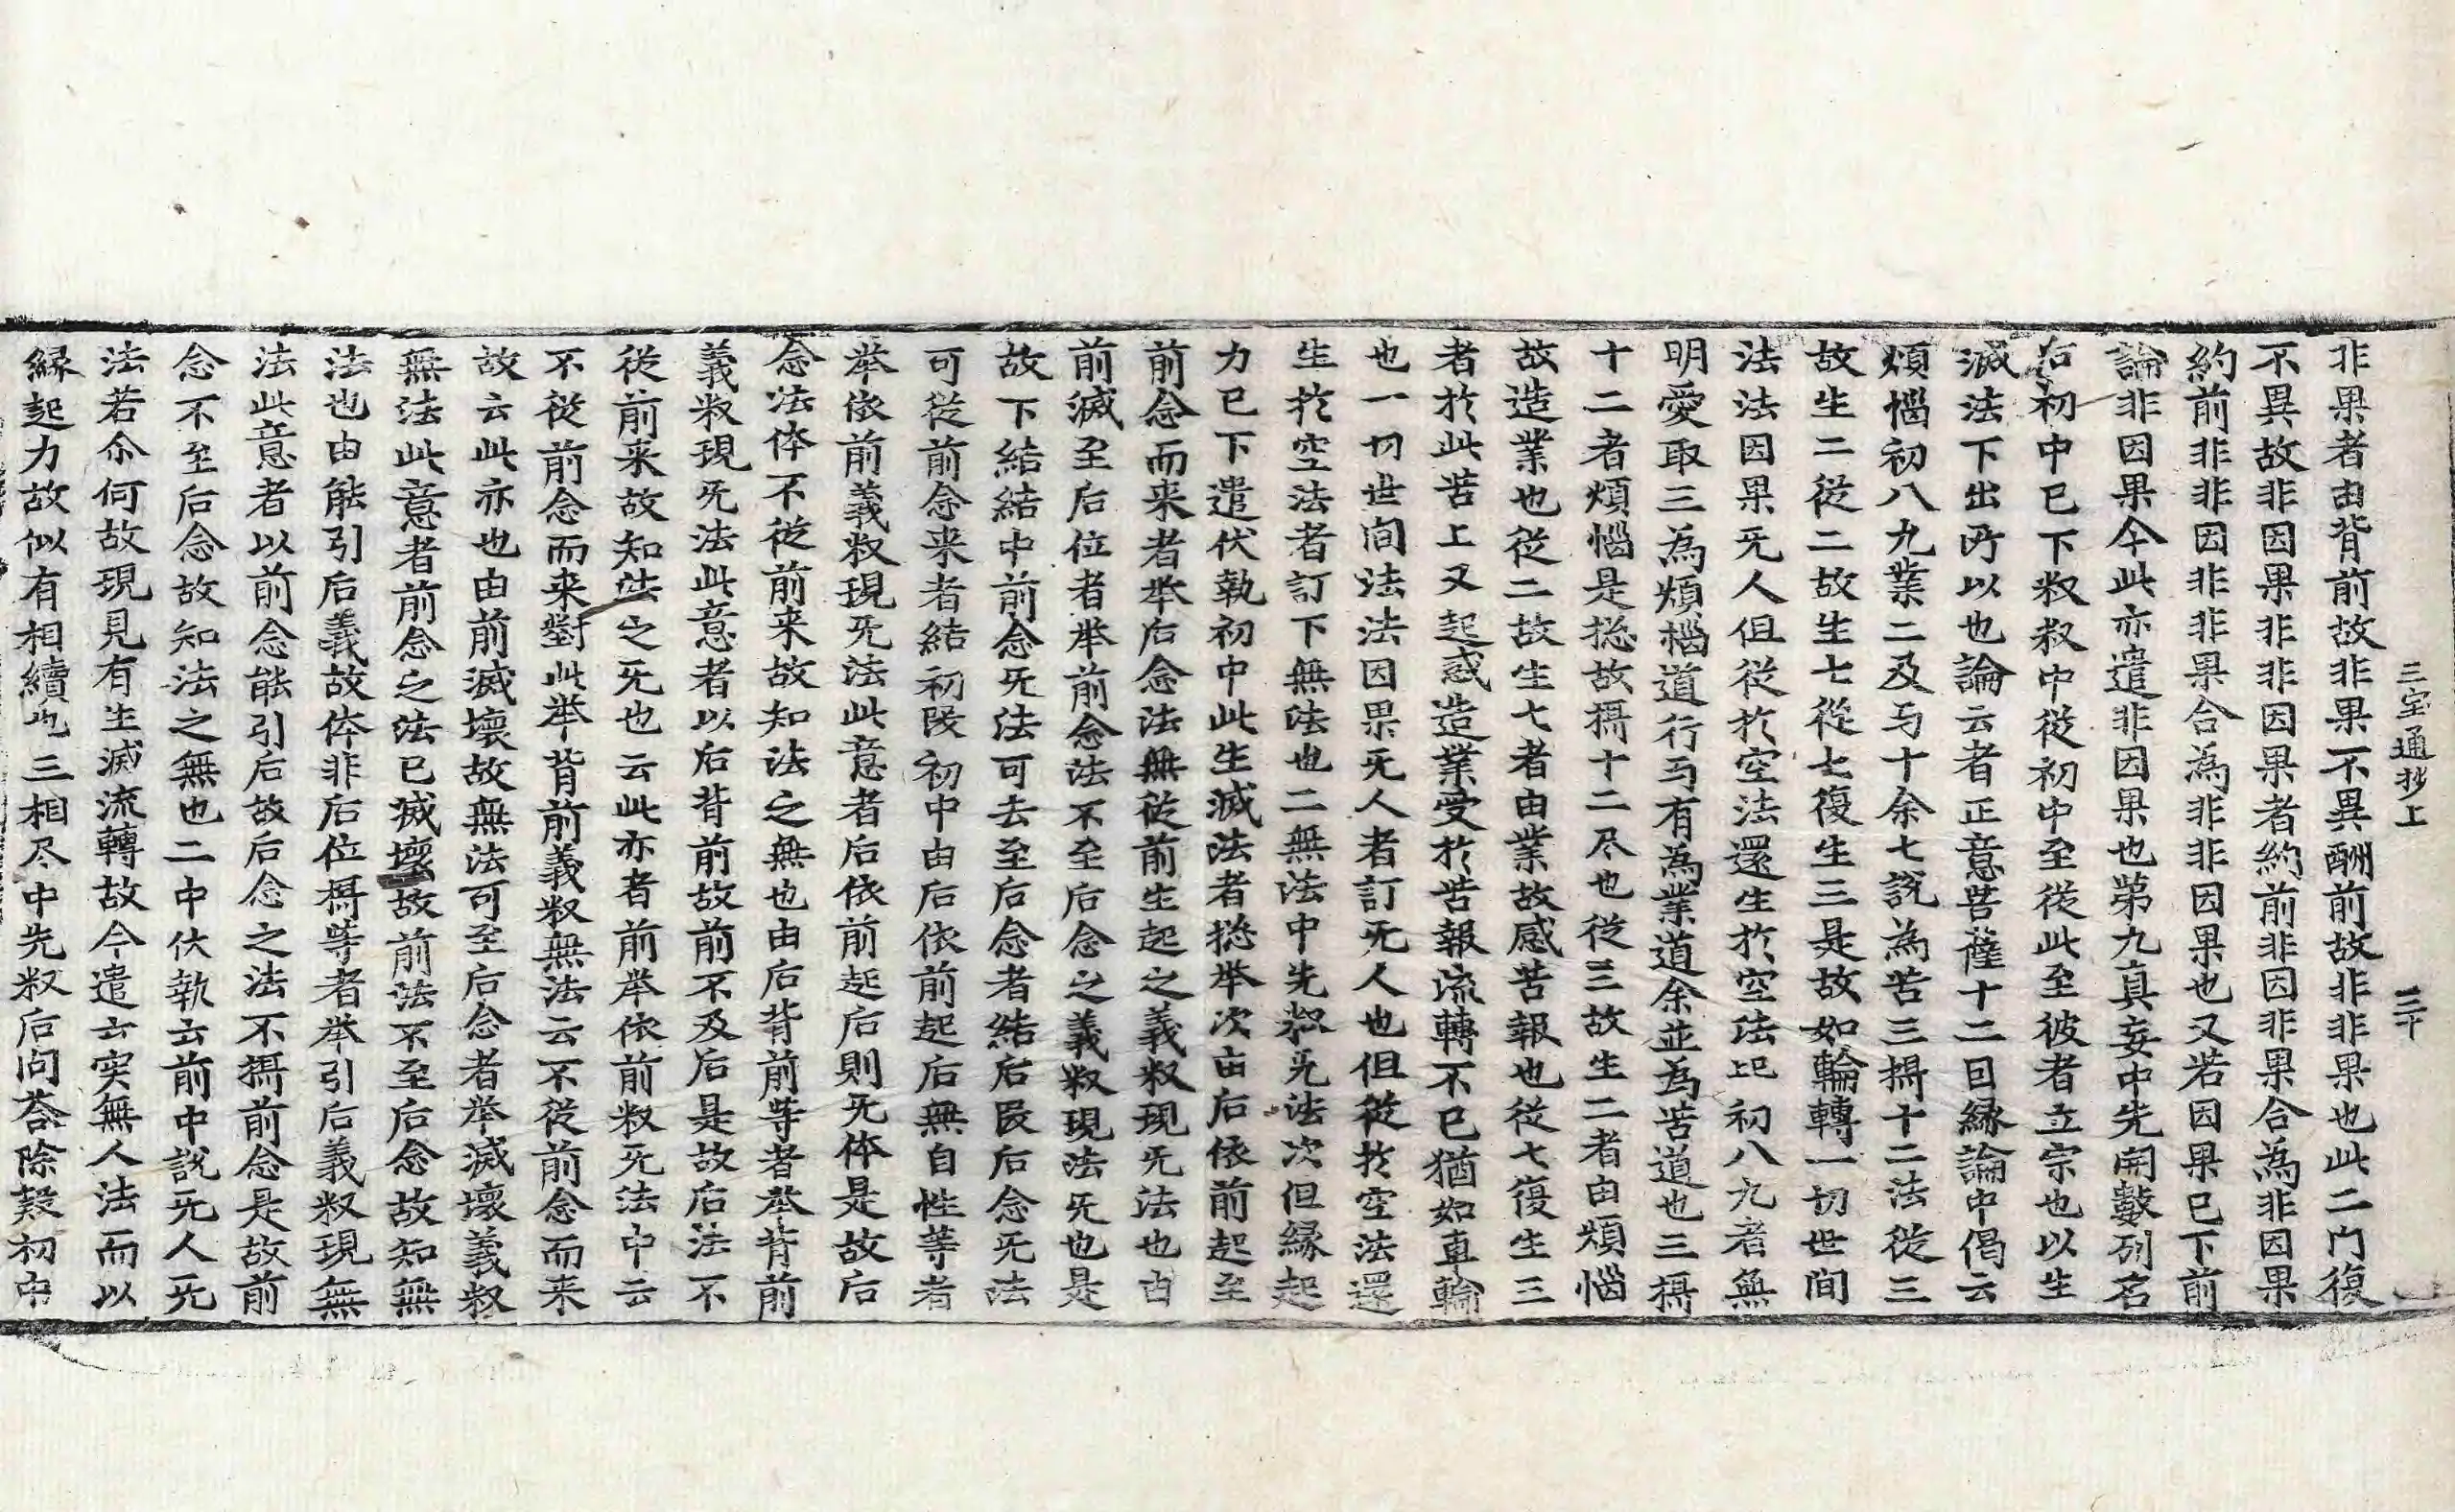 三宝通抄上 三十
非果者由背前故非果不異酬前故非非果也此二门復
不異故非因果非非因果者約前非因非果合為非因果
約前非非因非非果合為非非因果也又若因果已下前
論非因果今此亦遣非因果也第九真妄中先開數列名
右初中已下叙叙中從初中至從此至彼者立宗也以生
滅法下出所以也論云者正意菩薩十二因縁論中偈云
煩惱初八九業二及与十余七說為苦三攝十二法從三
故生二從二故生七從七復生三是故如輪轉一切世間
法法因果无人但從於空法還生於空法比初八九者無
明愛取三為煩惱道行与有為業道余並為苦道也三攝
十二者煩惱是捴故攝十二尽也從三故生二者由煩惱
故造業也從二故生七者由業故感苦報也從七復生三
者於此苦上又起惑造業受於苦報流轉不已猶如車輪
也一切世间法法因果无人者訂无人也但從於空法還
生於空法者訂下無法也二無法中先叙无法次但縁起
力已下遣伏執初中此生滅法者捴举次由后依前起至
前念而来者举后念法無從前生起之義叙現无法也由
前滅至后位者举前念法不至后念之義叙現法无也是
故下結結中前念无法可去至后念者結后段后念无法
可從前念来者結初段初中由后依前起后無自性等者
举依前義叙現无法此意者后依前起后則无体是故后
念法体不從前来故知法之無也由后背前等者举背前
義叙現无法此意者以后背前故前不及后是故后法不
從前来故知法之无也云此亦者前举依前叙无法中云
不從前念而来對此举背前義叙無法云不從前念而来
故云此亦也由前滅壞故無法可至后念者举滅壞義叙
無法此意者前念之法已滅壞故前法不至后念故知無
法也由能引后義故体非后位攝等者举引后義叙現無
法此意者以前念能引后故后念之法不攝前念是故前
念不至后念故知法之無也二中伏執云前中說无人无
法若尒何故現見有生滅流轉故今遣云实無人法而以
縁起力故似有相續也三相尽中先叙后问答除疑初中